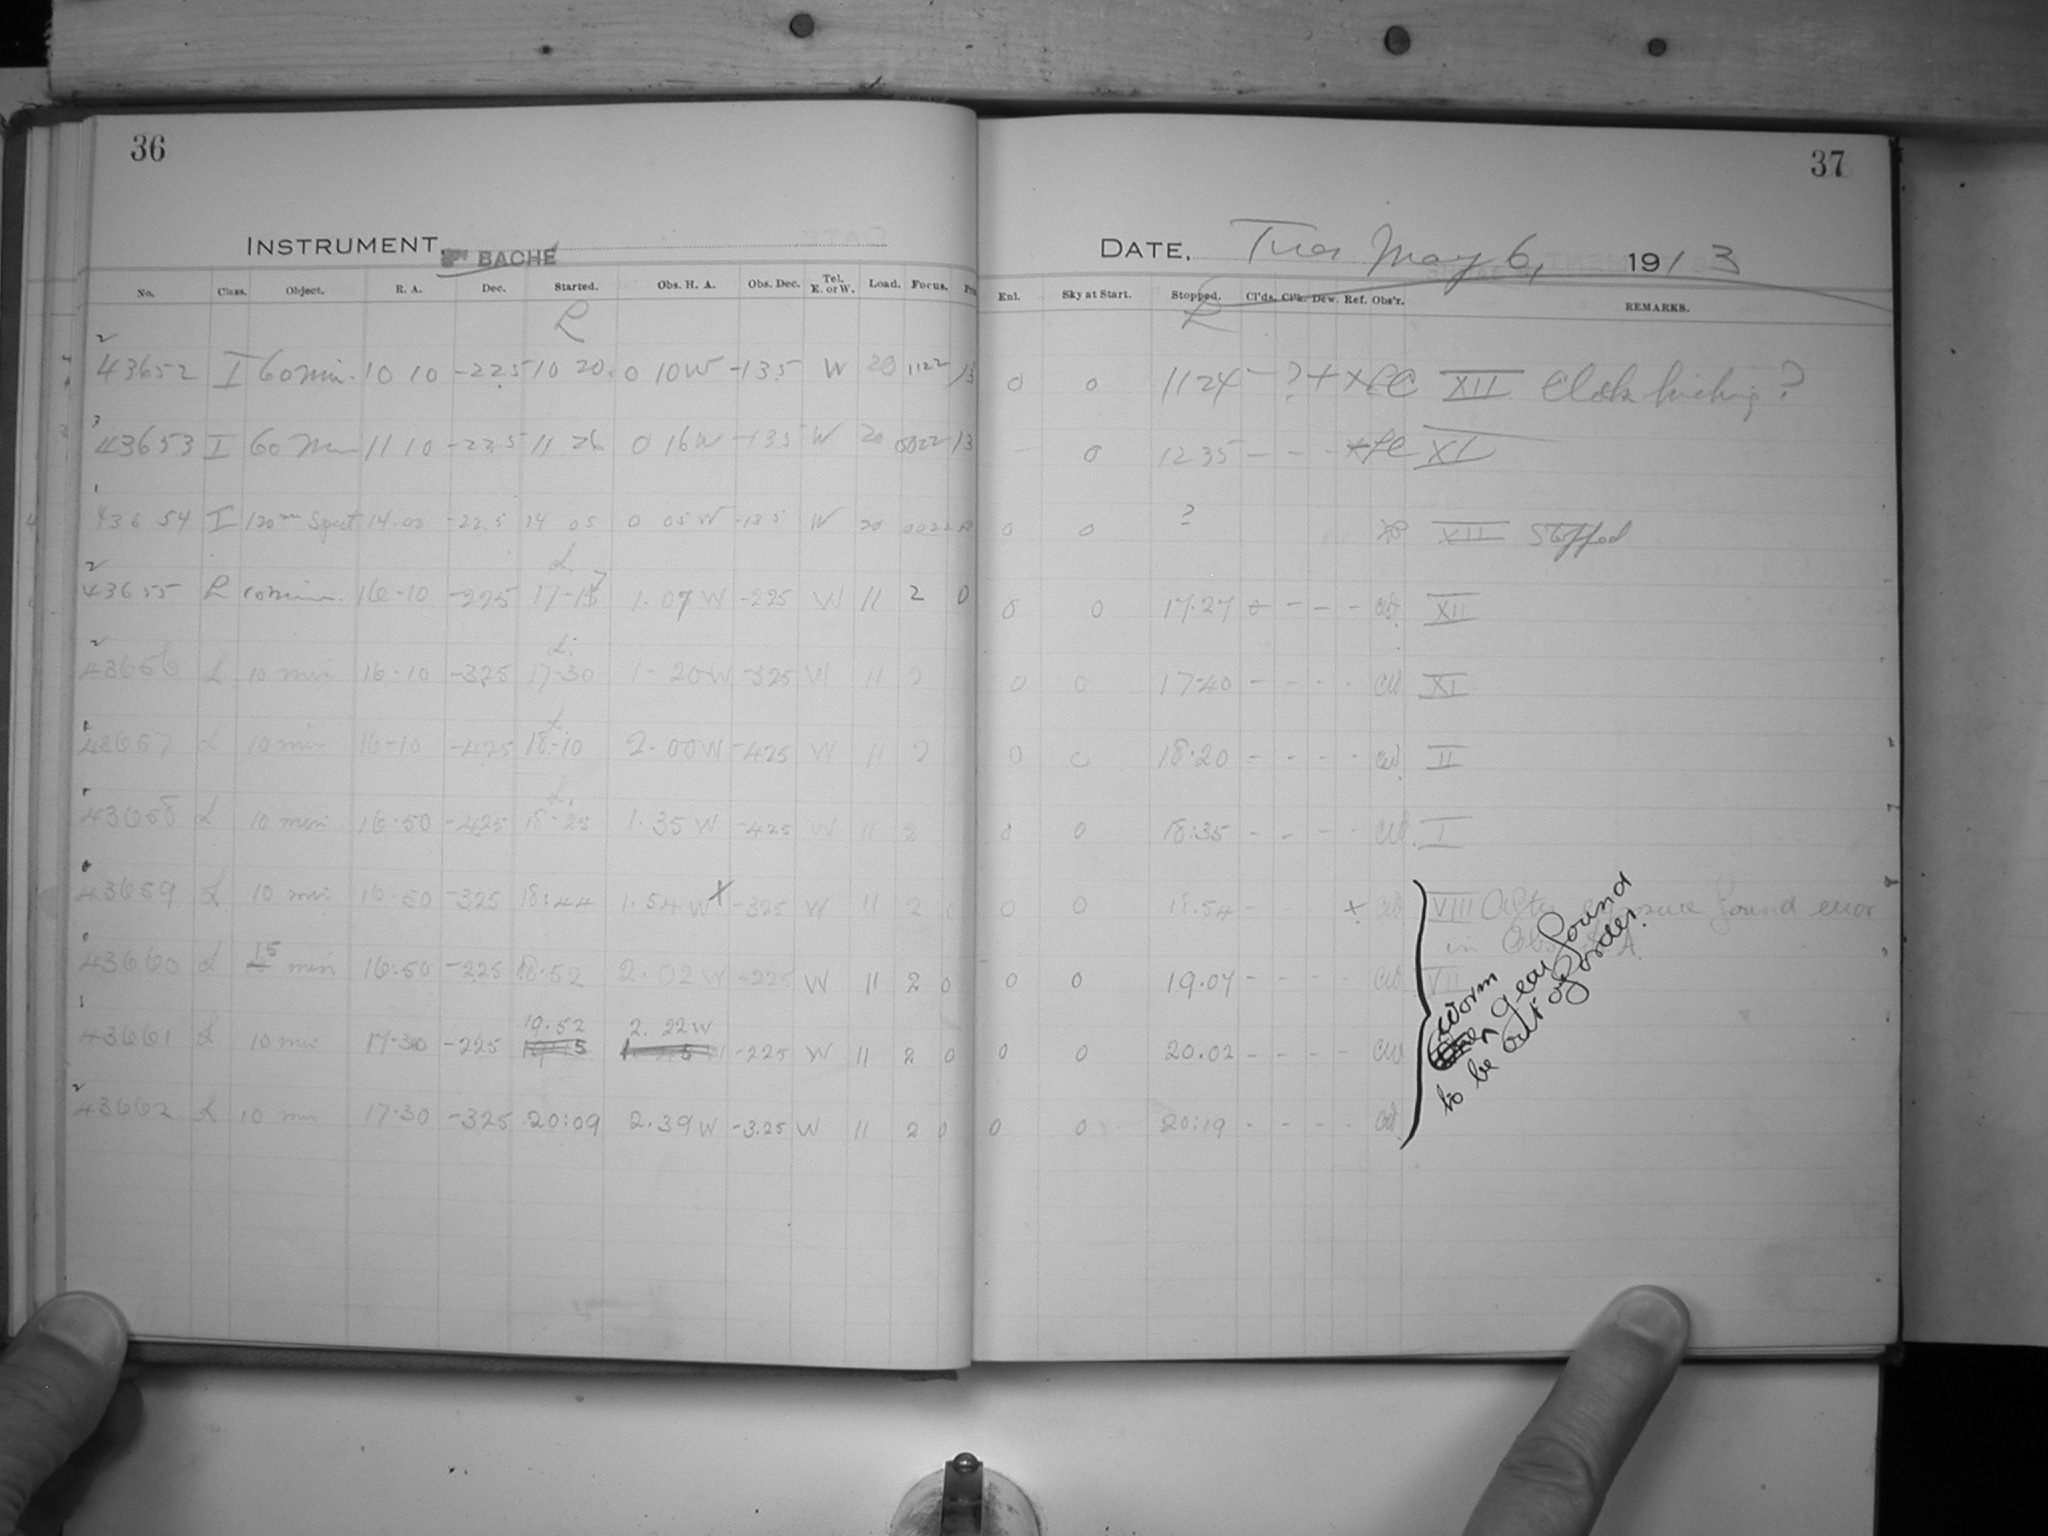 36
37
INSTRUMENT, BACHE
DATE, Tues May 6, 1913
No. Class. Object. R. A. Dec. Started. Obs. H. A. Obs. Dec. Tel. E. or W. Load. Focus.
Enl. Sky at Start. Stopped. Cl'ds. Cl'k. Dew. Ref. Obs'r. REMARKS.
2
43652 I 60 min. 10 10 -22.5 10 20. 0 10 W -13.5 W 20 1122 13 0 0 1124 - ? + × XII Clock ?
3
43653 I 60 11 10 -22.5 11 26 0 16 W -13.5 W 20 0022 13 - 0 1235 - - - × XI
1
43654 I 120m Spect 14.00 -22.5 14 05 0 05 W -13.5 W 20 0022 0 0 ? XII Stopped
2
43655 10 min. 16-10 -225 17-17 1.07 W -225 W 11 2 0 0 0 17.27 - - - - XII
2
43656 L 10 min 16-10 -325 17-30 1-20 W -325 W 11 2 0 0 17.40 - - - - XI
43657 L 10 min 16-10 -425 18-10 2.00 W -425 W 11 2 0 0 18.20 - - - - II
43658 L 10 min 16.50 -425 18-25 1.35 W -425 W 11 2 0 0 18:35 - - - - I
43659 L 10 min 16.50 -325 18:44 1.54 W × -325 W 11 2 0 0 0 18.54 - - - × VIII After exposure found error
in Obs. H. A.
43660 L 15 min 16:50 -225 18.52 2.02 W -225 W 11 2 0 0 0 19.07 - - - - VII
1
43661 L 10 min 17.30 -225 19.52 2.22 W -225 W 11 2 0 0 0 20.02 - - - -
2
43662 L 10 min 17.30 -325 20:09 2.39 W -3.25 W 11 2 0 0 0 20:19 - - - -
Worm gear found
to be out of order.